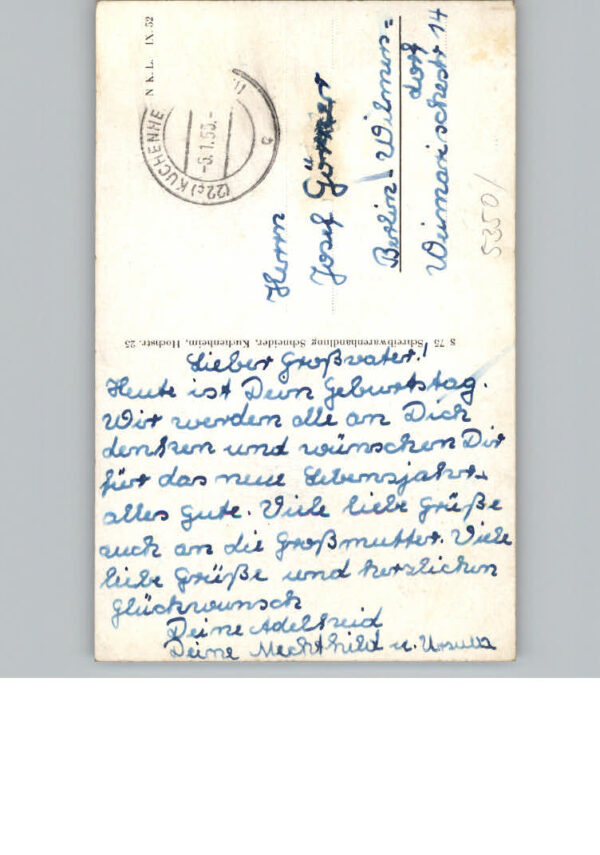 Lieber Großvater!
Heute ist Dein Geburtstag.
Wir werden alle an Dich
denken und wünschen Dir
für das neue Lebensjahr
alles gute. Viele liebe Grüße
auch an die Großmutter. Viele
liebe Grüße und herzlichen
Glückwunsch
Deine Adelheid
Deine Mechthild u. Ursula
Herrn
Josef Görner
Berlin-Wilmers=
dorf
Weimarischestr 14
5350/
S 75 Schreibwarenhandlung Schneider, Kuchenheim, Hochstr. 25
N K. L. IX. 52
(22c) KUCHENHE
-6.1.53.-
c